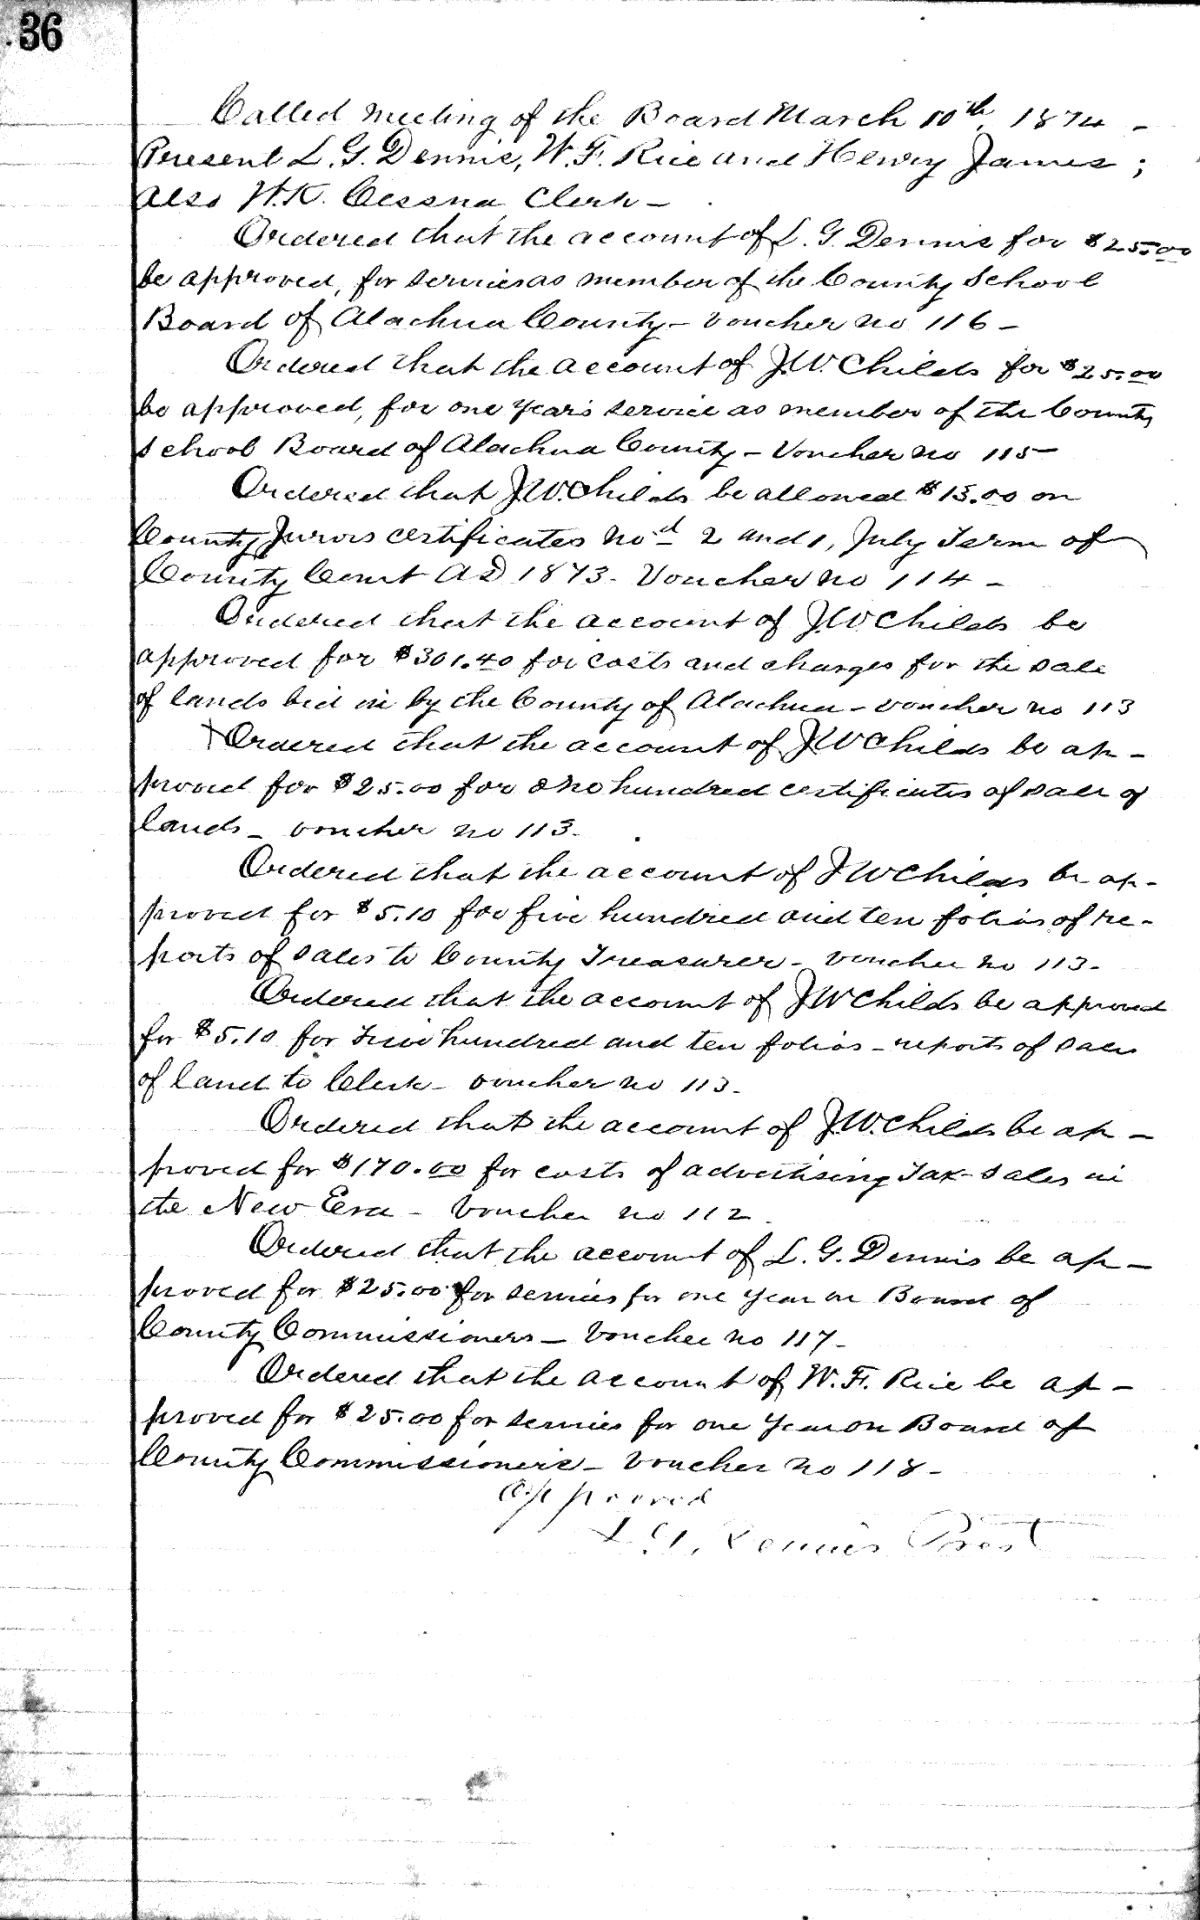 36
Called meeting of the Board March 10th 1874 -
Present L. G. Dennis, W. F. Rice and Henry James ;
also W. K. Cessna Clerk -
Ordered that the account of L. G. Dennis for $25.00
be approved, for services as member of the County School
Board of Alachua County - Voucher no 116 -
Ordered that the account of J. W. Childs for $25.00
be approved, for one year's service as member of the County
School Board of Alachua County - Voucher no 115 -
Ordered that J. W. Childs be allowed $15.00 on
County Jurors certificates Nos 2 and 1, July Term of
County Court AD 1873 - Voucher no 114 -
Ordered that the account of J. W. Childs be
approved for $301.40 for costs and charges for the sale
of lands bid in by the County of Alachua - voucher no 113
Ordered that the account of J W Childs be ap -
proved for $25.00 for one hundred certificates of sale of
lands - voucher no 113.
Ordered that the account of J W Childs be ap -
proved for $5.10 for five hundred and ten folios of re -
ports of sales to County Treasurer - voucher no 113 -
Ordered that the account of J W Childs be approved
for $5.10 for five hundred and ten folios - reports of sales
of land to Clerk - voucher no 113 -
Ordered that the account of J. W. Childs be ap -
proved for $170.00 for costs of advertising Tax - sales in
the New Era - Voucher no 112.
Ordered that the account of L. G. Dennis be ap -
proved for $25.00 for services for one year on Board of
County Commissioners - Voucher no 117 -
Ordered that the account of W. F. Rice be ap -
proved for $25.00 for services for one year on Board of
County Commissioners - Voucher no 118 -
approved
L. G. Dennis Prest